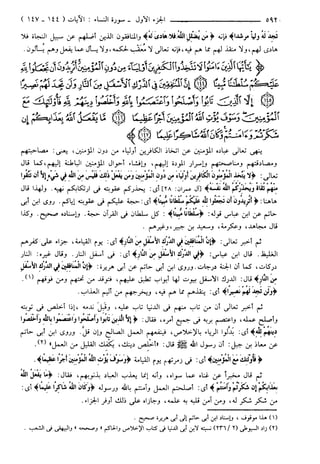 ٥٩٢ ــــــ الجزء الأول - سورة النساء : الآيات ( ١٤٤ - ١٤٧ )
تجد له وليا مرشدا ﴾ فإنه ﴿ من يضلل الله فلا هادى له ﴾ والمنافقون الذين أضلهم عن سبيل النجاة فلا
هادى لهم، ولا منقذ لهم مما هم فيه، فإنه تعالى لا معقب لحكمه، ولا يسأل عما يفعل وهم يسألون.
﴿ يا أيها الذين آمنوا لا تتخذوا الكافرين أولياء من دون المؤمنين أتريدون أن تجعلوا لله
عليكم سلطانا مبينا إن المنافقين فى الدرك الأسفل من النار ولن تجد لهم نصيرا
إلا الذين تابوا وأصلحوا واعتصموا بالله وأخلصوا دينهم لله فأولئك مع
المؤمنين وسوف يؤت الله المؤمنين أجرا عظيما ما يفعل الله بعذابكم إن
شكرتم وآمنتم وكان الله شاكرا عليما ﴾
ينهى تعالى عباده المؤمنين عن اتخاذ الكافرين أولياء من دون المؤمنين، يعنى: مصاحبتهم
ومصادقتهم ومناصحتهم وإسرار المودة إليهم، وإفشاء أحوال المؤمنين الباطنة إليهم، كما قال
تعالى: ﴿ لا يتخذ المؤمنون الكافرين أولياء من دون المؤمنين ومن يفعل ذلك فليس من الله فى شىء إلا أن تتقوا
منهم تقاة ويحذركم الله نفسه ﴾ [آل عمران: ٢٨] أى: يحذركم عقوبته فى ارتكابكم نهيه. ولهذا قال
هاهنا: ﴿ أتريدون أن تجعلوا لله عليكم سلطانا مبينا ﴾ أى: حجة عليكم فى عقوبته إياكم. روى ابن أبى
حاتم عن ابن عباس قوله: ﴿ سلطانا مبينا ﴾: كل سلطان فى القرآن حجة. وإسناده صحيح. وكذا
قال مجاهد، وعكرمة، وسعيد بن جبير، وغيرهم.
ثم أخبر تعالى: ﴿ إن المنافقين فى الدرك الأسفل من النار ﴾ أى: يوم القيامة، جزاء على كفرهم
الغليظ. قال ابن عباس: ﴿ فى الدرك الأسفل من النار ﴾ أى: فى أسفل النار. وقال غيره: النار
دركات، كما أن الجنة درجات. وروى ابن أبى حاتم عن أبى هريرة: ﴿ إن المنافقين فى الدرك الأسفل
من النار ﴾ قال: الدرك الأسفل بيوت لها أبواب تطبق عليهم، فتوقد من تحتهم ومن فوقهم (١).
﴿ ولن تجد لهم نصيرا ﴾ أى: ينقذهم مما هم فيه، ويخرجهم من أليم العذاب.
ثم أخبر تعالى أن من تاب منهم فى الدنيا تاب عليه، وقبل ندمه، إذا أخلص فى توبته
وأصلح عمله، واعتصم بربه فى جميع أمره، فقال: ﴿ إلا الذين تابوا وأصلحوا واعتصموا بالله وأخلصوا
دينهم لله ﴾ أى: بدلوا الرياء بالإخلاص، فينفعهم العمل الصالح وإن قل. وروى ابن أبى حاتم
عن معاذ بن جبل: أن رسول الله ﷺ قال: «أخلص دينك، يكفك القليل من العمل» (٢).
﴿ فأولئك مع المؤمنين ﴾ أى: فى زمرتهم يوم القيامة ﴿ وسوف يؤت الله المؤمنين أجرا عظيما ﴾.
ثم قال مخبرا عن غناه عما سواه، وأنه إنما يعذب العباد بذنوبهم، فقال: ﴿ ما يفعل الله
بعذابكم إن شكرتم وآمنتم ﴾ أى: أصلحتم العمل وآمنتم بالله ورسوله ﴿ وكان الله شاكرا عليما ﴾ أى:
من شكر شكر له، ومن آمن قلبه به علمه، وجازاه على ذلك أوفر الجزاء.
(١) هذا موقوف ، وإسناد ابن أبى حاتم إلى أبى هريرة صحيح .
(٢) زاد السيوطى (٢/ ٢٣٦) نسبته لابن أبى الدنيا فى كتاب الإخلاص والحاكم « وصححه » والبيهقى فى الشعب .